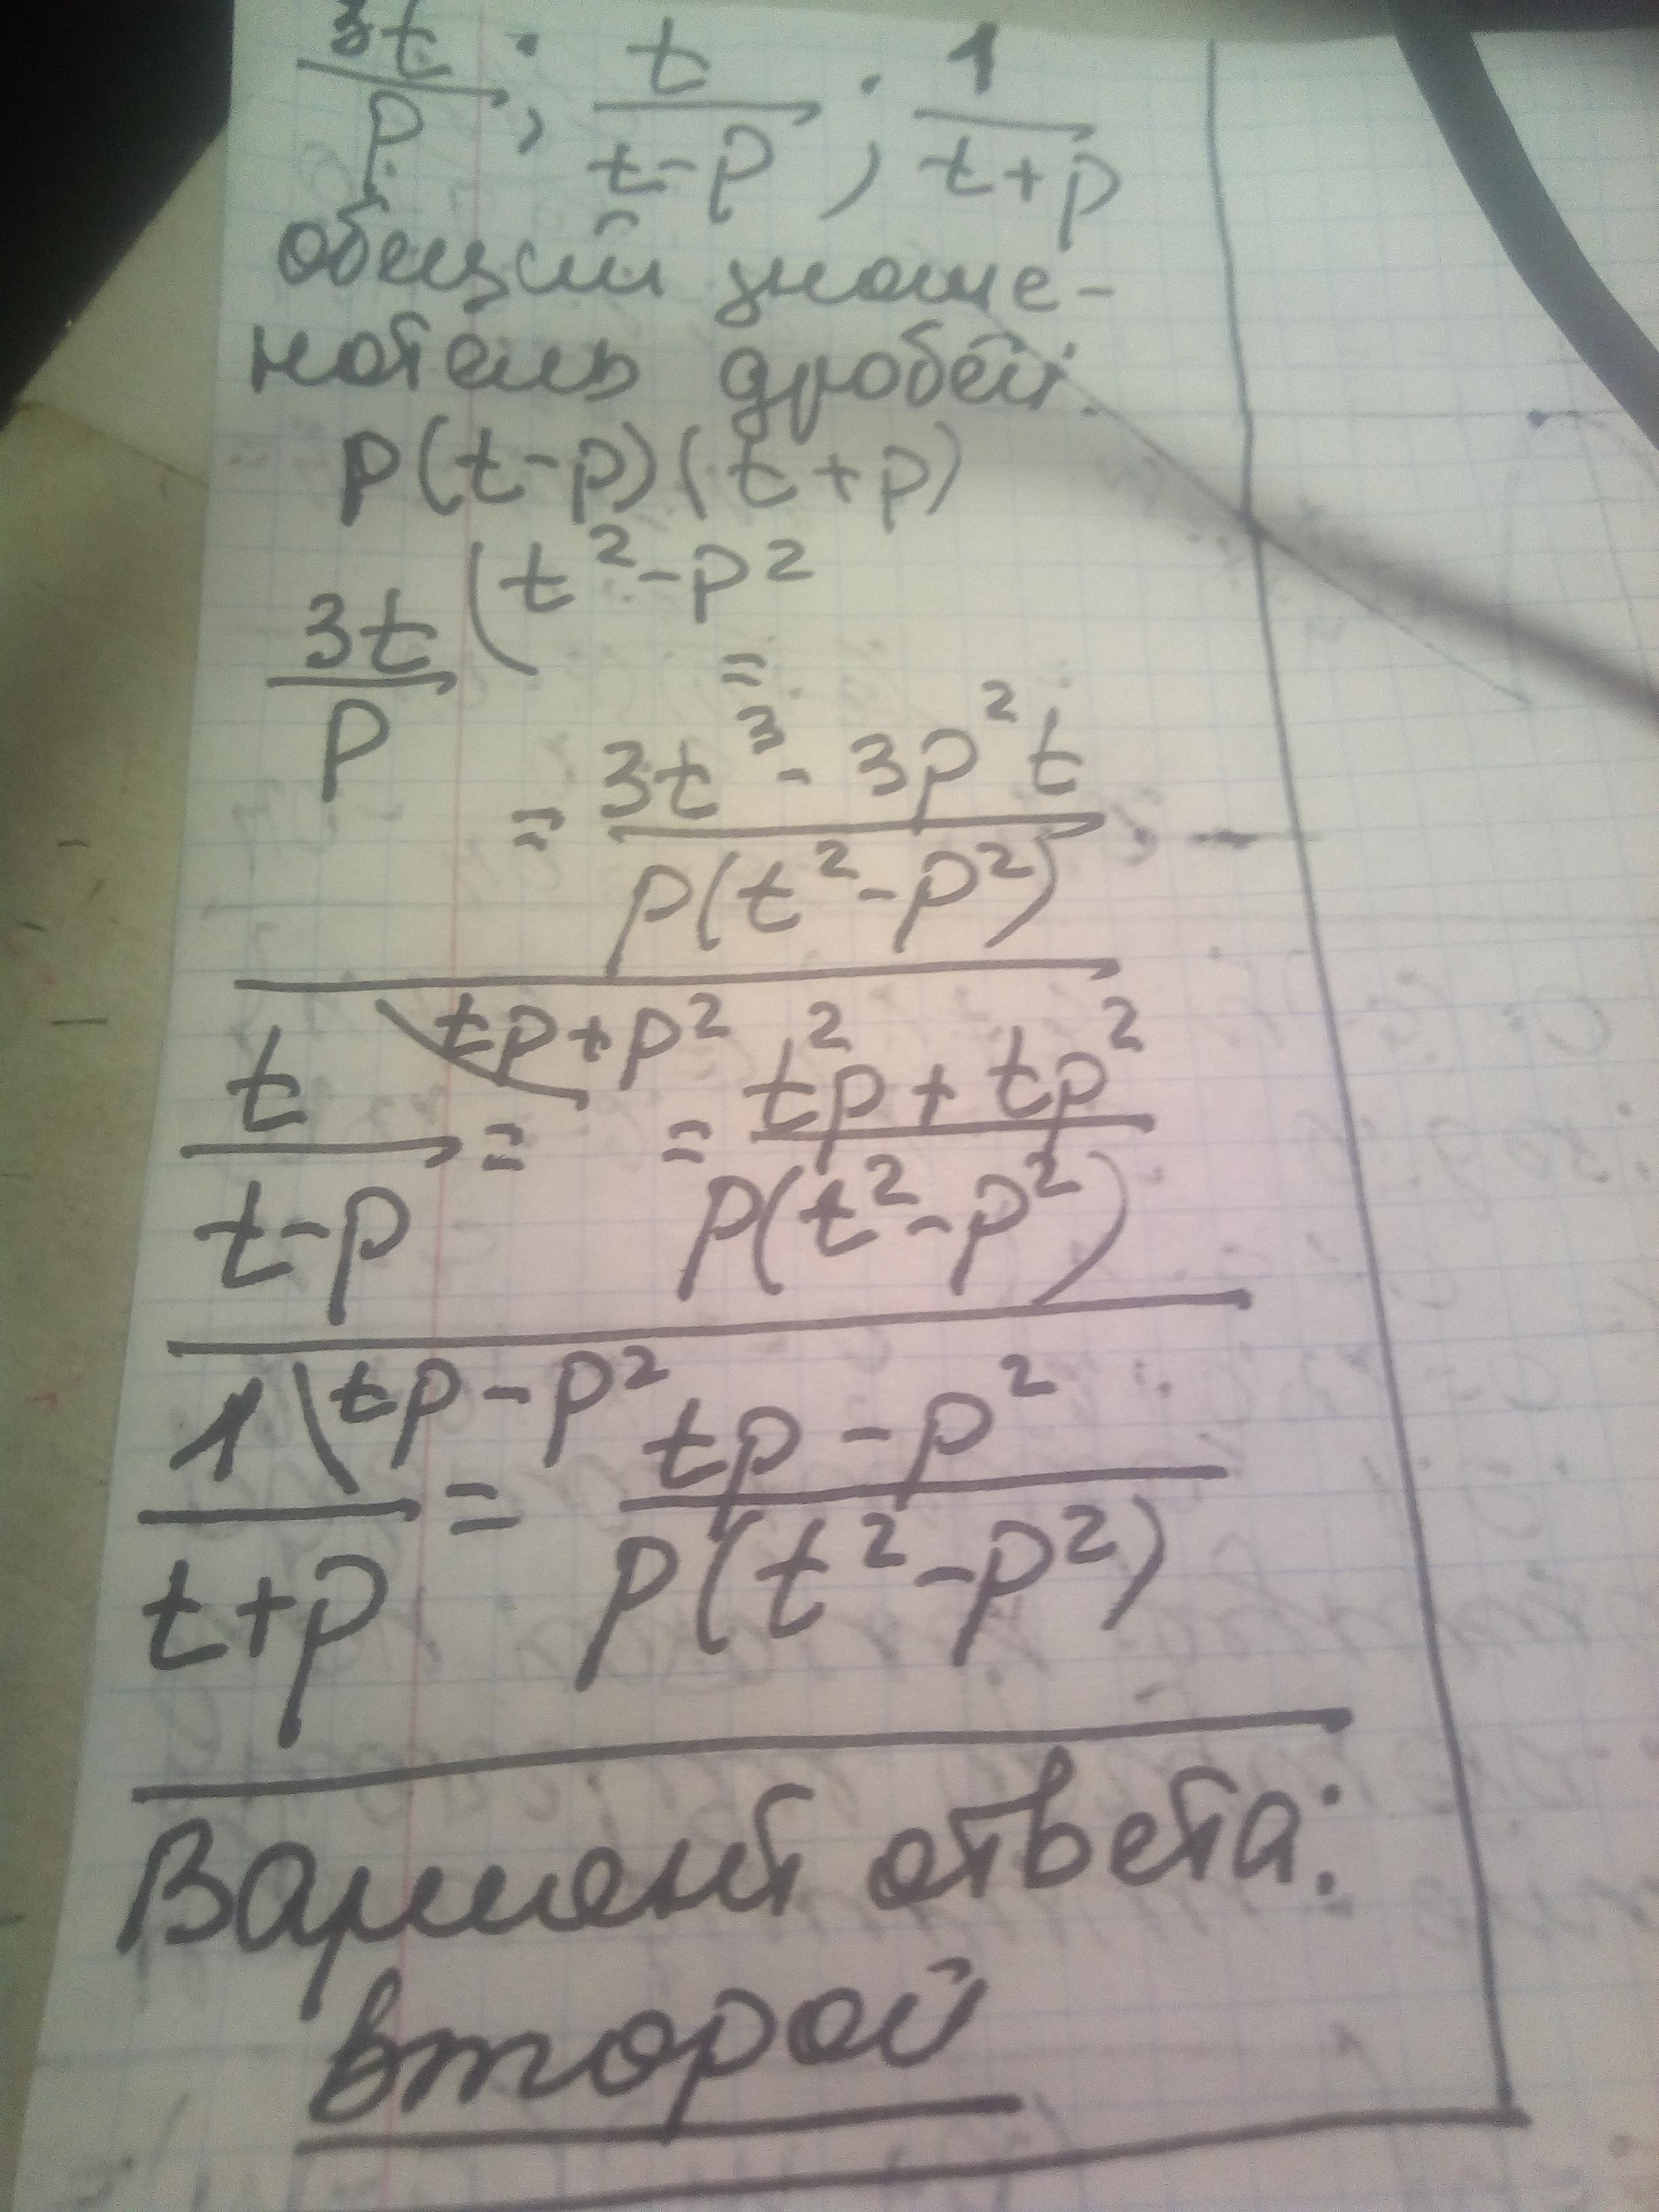 3t/p ; t/(t-p) ; 1/(t+p)
общий знаме-
натель дробей:
p(t-p)(t+p)
3t/p (t²-p² =
= (3t³-3p²t)/(p(t²-p²))
t/(t-p) \tp+p² = = (t²p+tp²)/(p(t²-p²))
1/(t+p) \tp-p² = (tp-p²)/(p(t²-p²))
Вариант ответа:
второй